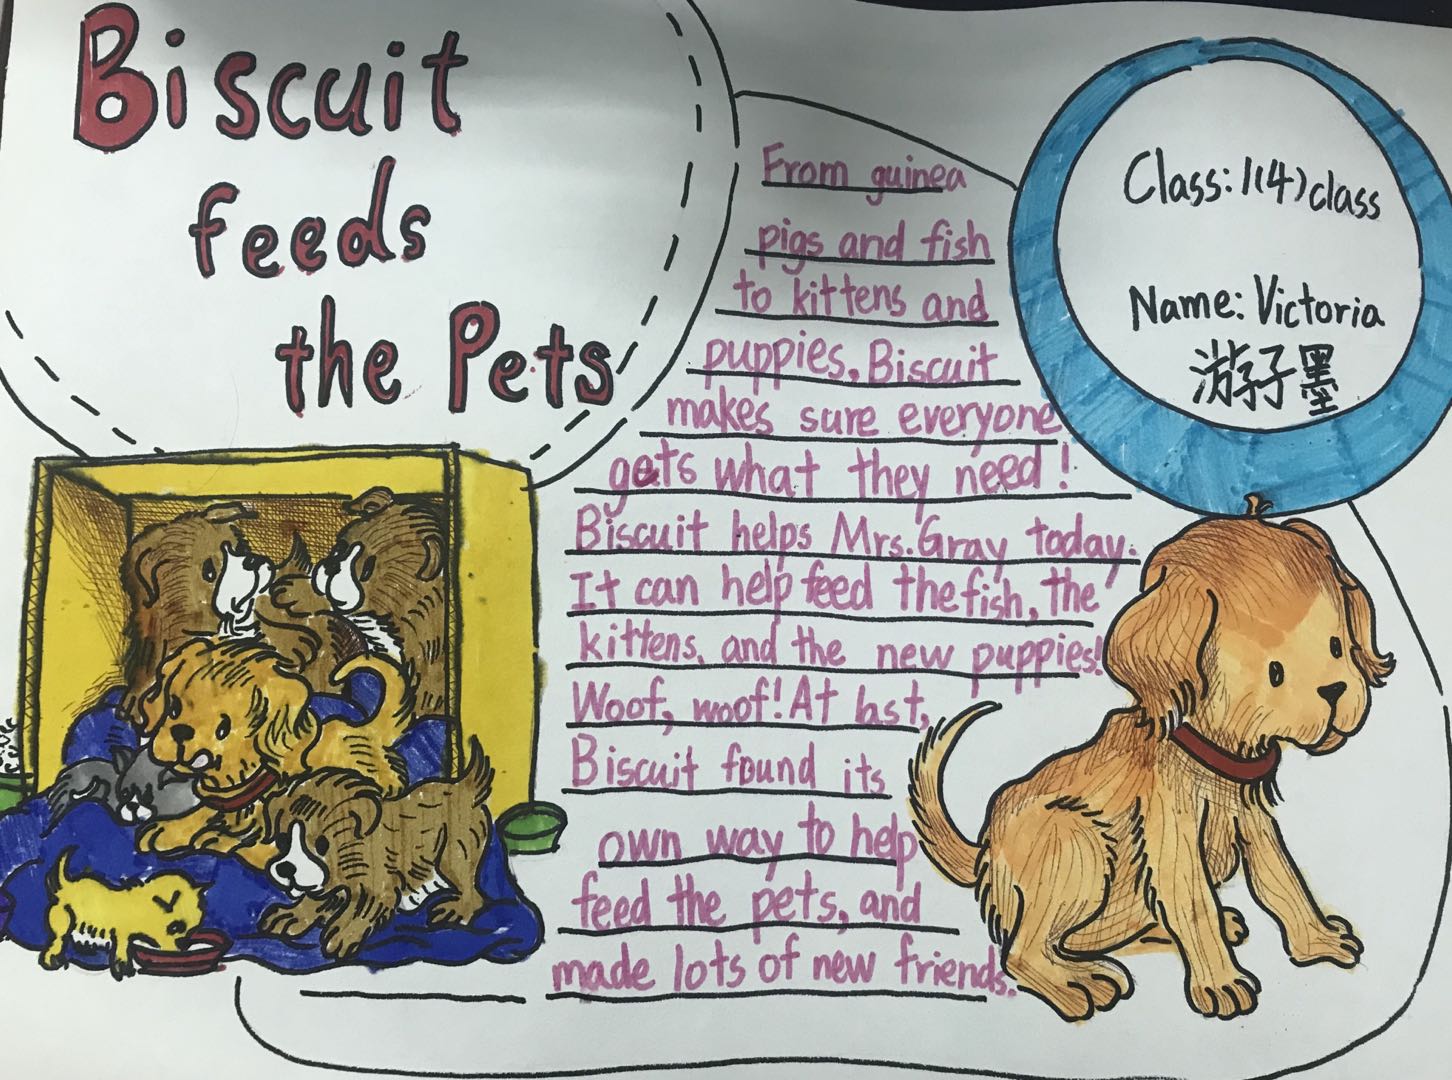 Biscuit
feeds
the Pets
From guinea
pigs and fish
to kittens and
puppies, Biscuit
makes sure everyone
gets what they need!
Biscuit helps Mrs. Gray today.
It can help feed the fish, the
kittens, and the new puppies!
Woof, woof! At last,
Biscuit found its
own way to help
feed the pets, and
made lots of new friends.
Class: 1(4) class
Name: Victoria
游子墨